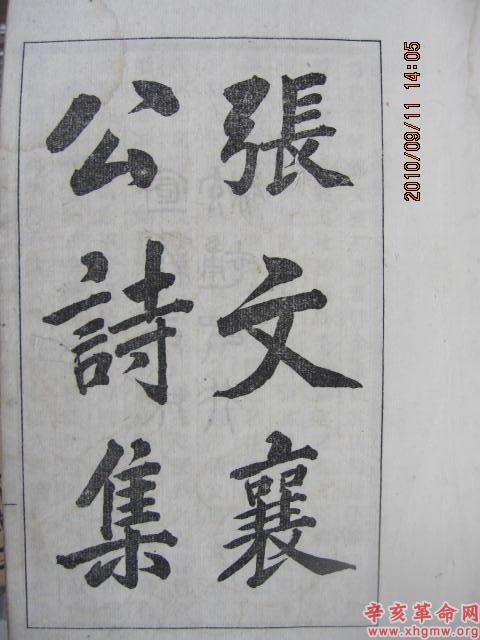 張文襄
公詩集
2010/09/11 14:05
辛亥革命网
www.xhgmw.org